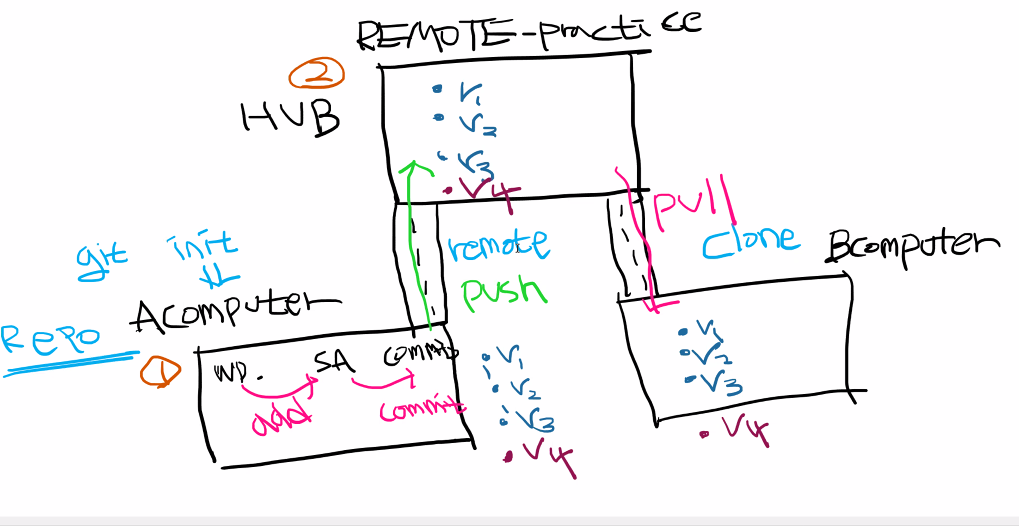 REMOTE-practice
②
HUB
V1
V2
V3
V4
pull
git init
remote
clone
Bcomputer
push
Acomputer
Repo
①
WD. SA commits
add
commit
V1
V2
V3
V4
V1
V2
V3
V4